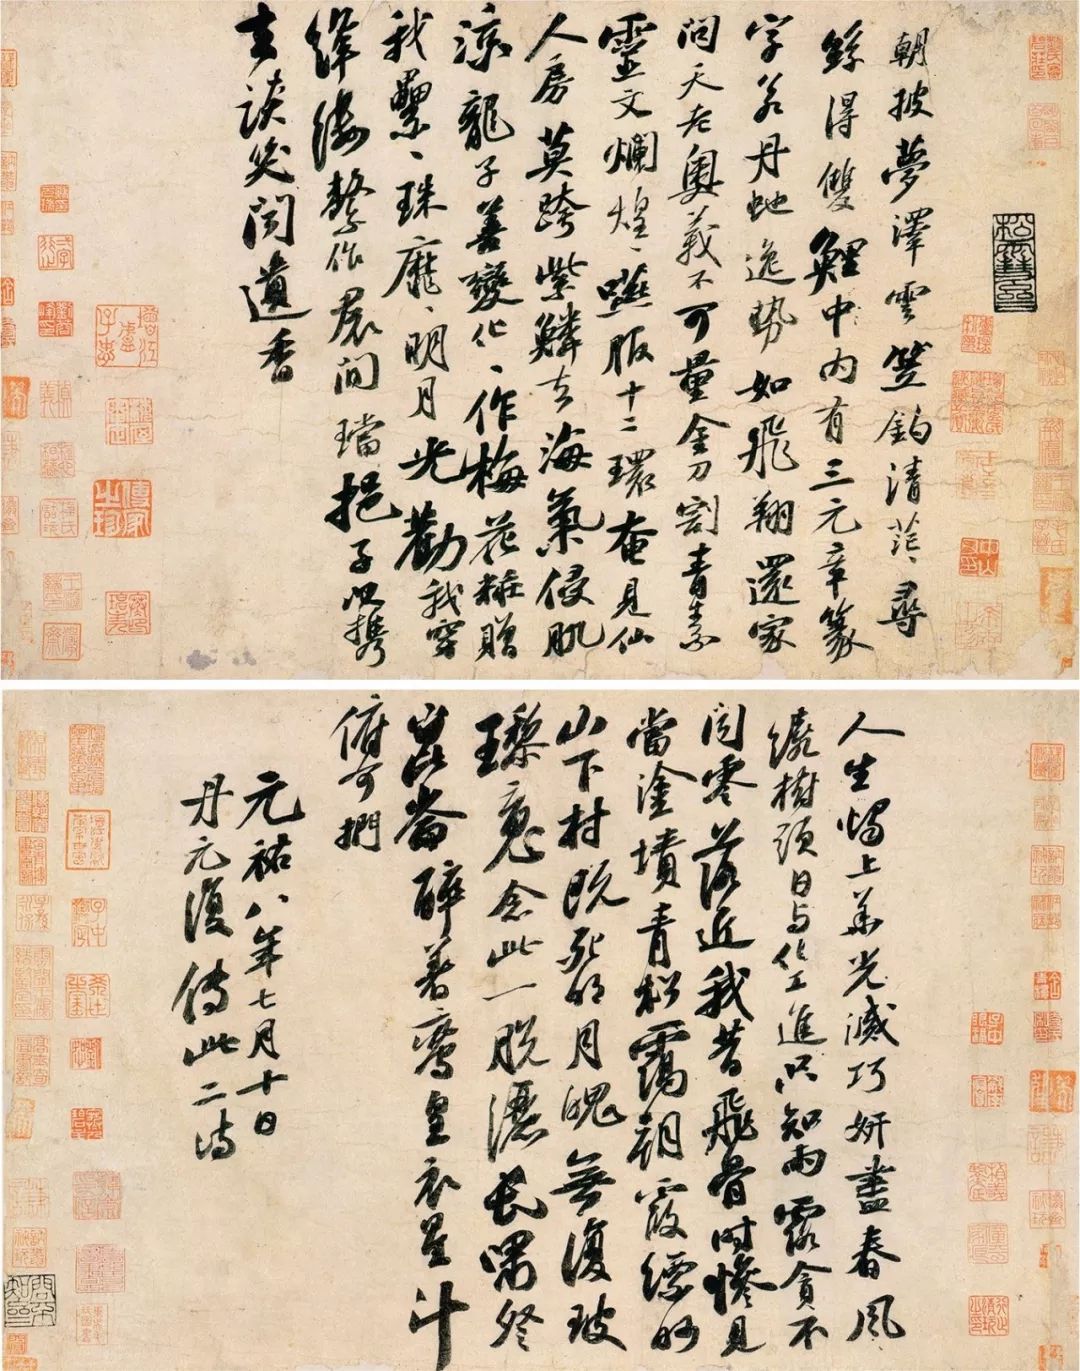 朝披夢澤雲笠釣清茫〻尋
絲得雙鯉中內有三元章篆
字若丹虵逸勢如飛翔還家
問天老奧義不可量金刀割青素
靈文爛煌〻嚥服十二環奄見仙
人房莫跨紫鱗去海氣侵肌
涼龍子善變化〻作梅花粧贈
我纍〻珠靡〻明月光勸我穿
絳縷繫作裠間璫挹子以携
去談笑聞遺香
人生燭上華光滅巧妍盡春風
繞樹頭日與化工進只知雨露貪不
聞零落近我昔飛骨時慘見
當塗墳青松靄朝霞縹眇
山下村既死明月魄無復玻
瓈魂念此一脫灑長嘯祭
崑崙醉著鸞皇衣星斗
俯可捫
元祐八年七月十日
丹元復傳此二詩